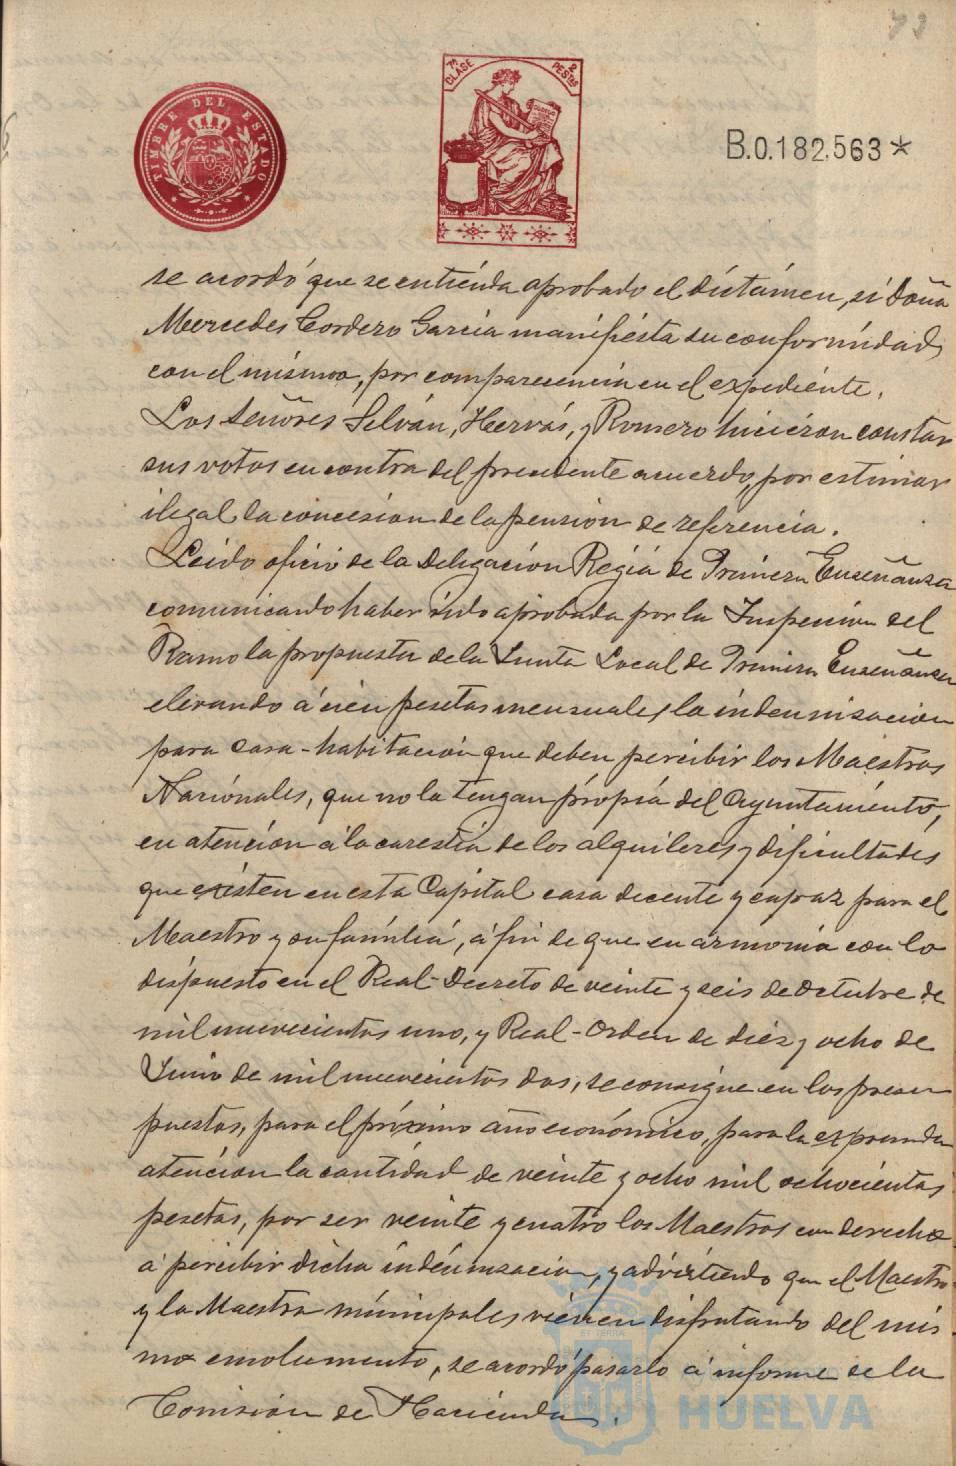 73
TIMBRE DEL ESTADO
7ª CLASE 2 PESETAS
B.0.182,563*
se acordó que se entienda aprobado el dictámen, si Doña
Mercedes Cordero García manifiesta su conformidad
con el mismo, por comparecencia en el expediente.
Los Señores Selván, Hervás, y Romero hicieron constar
sus votos en contra del precedente acuerdo, por estimar
ilegal la concesion de la pension de referencia.
Leido oficio de la Delegación Regia de Primera Enseñanza
comunicando haber sido aprobada por la Inspeccion del
Ramo la propuesta de la Junta Local de Primera Enseñanza
elevando á cien pesetas mensuales la indemnizacion
para casa-habitación que deben percibir los Maestros
Nacionales, que no la tengan própia del Ayuntamiento,
en atencion á la carestia de los alquileres y dificultades
que existen en esta Capital casa decente y capaz para el
Maestro y su familia, á fin de que en armonia con lo
dispuesto en el Real-Decreto de veinte y seis de Octubre de
mil nuevecientos uno, y Real-Orden de diez y ocho de
Junio de mil nuevecientos dos, se consigne en los presu
puestos, para el próximo año económico, para la expresada
atencion la cantidad de veinte y ocho mil ochocientas
pesetas, por ser veinte y cuatro los Maestros con derecho
á percibir dicha indemnizacion, y advirtiendo que el Maestro
y la Maestra municipales vienen disfrutando del mis-
mo emolumento, se acordó pasarlo á informe de la
Comisión de Hacienda.
HUELVA